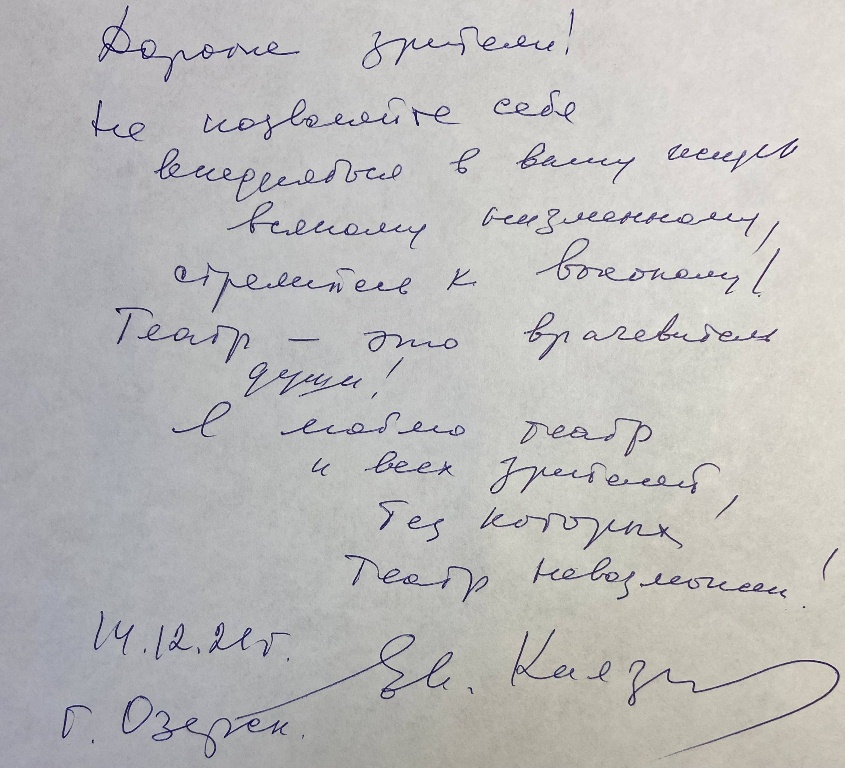 Дорогие зрители!
Не позволяйте себе
внедряться в вашу жизнь
всякому низменному,
стремитесь к высокому!
Театр — это врачеватель
души!
Я люблю театр
и всех зрителей,
без которых
театр невозможен!
14.12.21г.
Ев. Князев
г. Озерск.